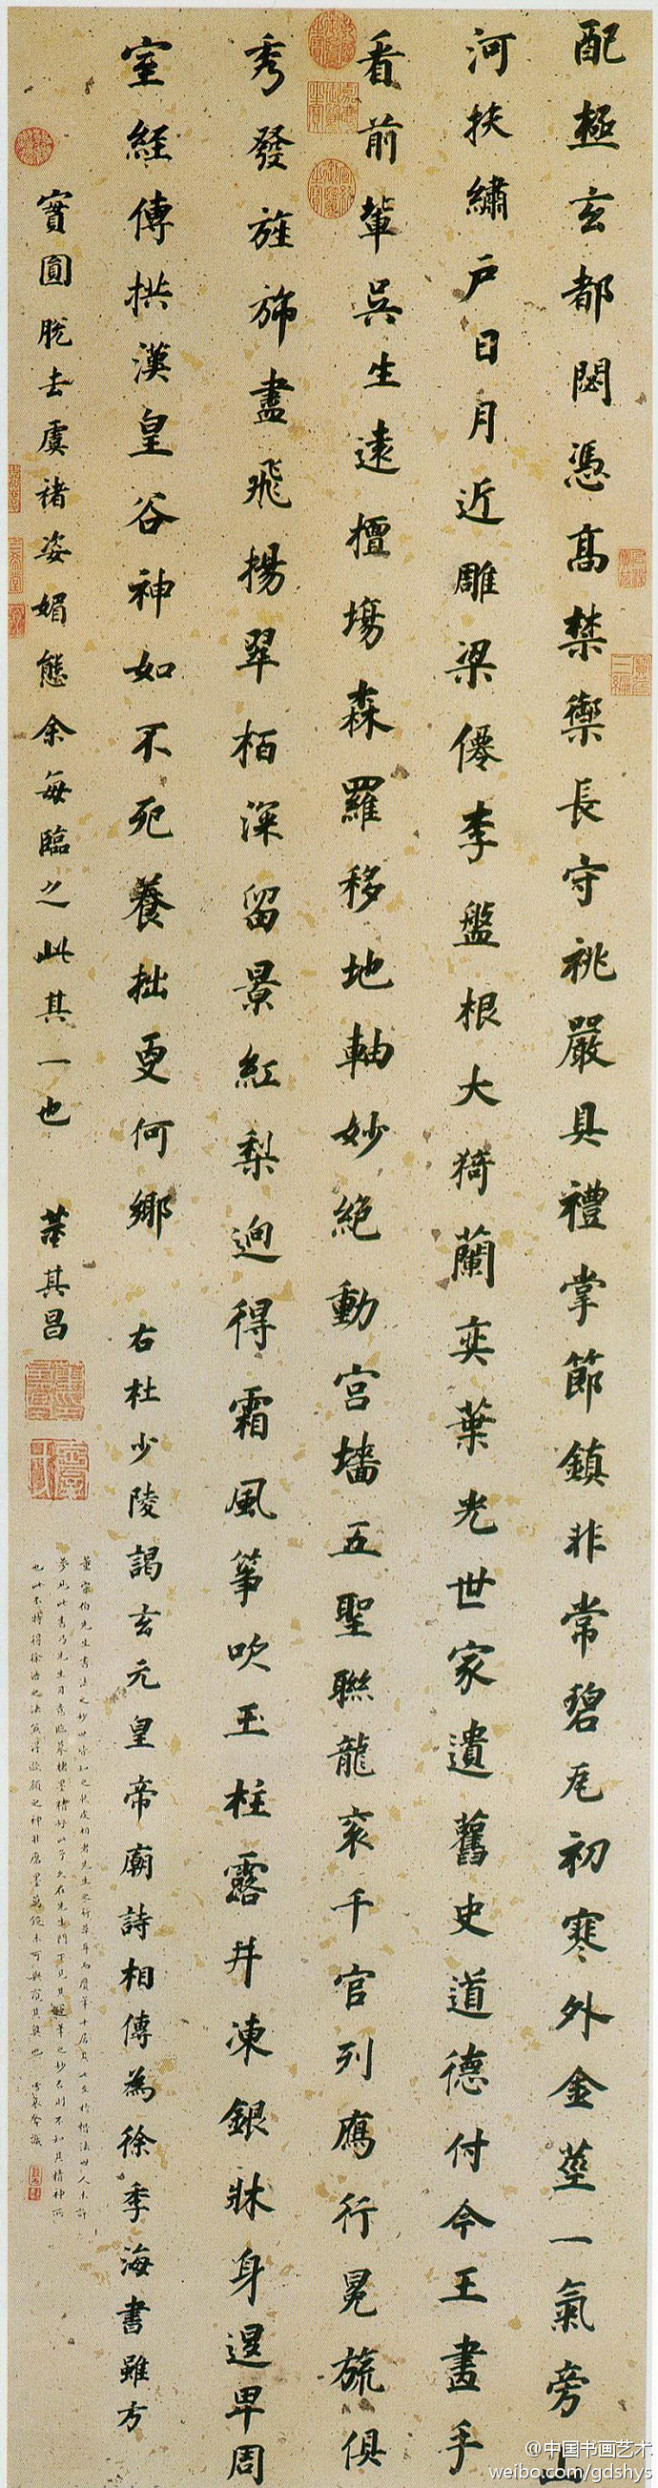 配極玄都閟憑高禁禦長守祧嚴具禮掌節鎮非常碧瓦初寒外金莖一氣旁山
河扶繡戶日月近雕梁僊李盤根大猗蘭奕葉光世家遺舊史道德付今王畫手
看前輩吳生遠擅場森羅移地軸妙絕動宮墻五聖聯龍衮千官列鴈行冕旒俱
秀發旌旆盡飛揚翠栢深留景紅梨迥得霜風箏吹玉柱露井凍銀牀身退卑周
室經傳拱漢皇谷神如不死養拙更何鄉 右杜少陵謁玄元皇帝廟詩相傳為徐季海書雖方
實圓脫去虞褚姿媚態余每臨之此其一也 董其昌
董宗伯先生書法之妙世皆知之
@中国书画艺术
weibo.com/gdshys